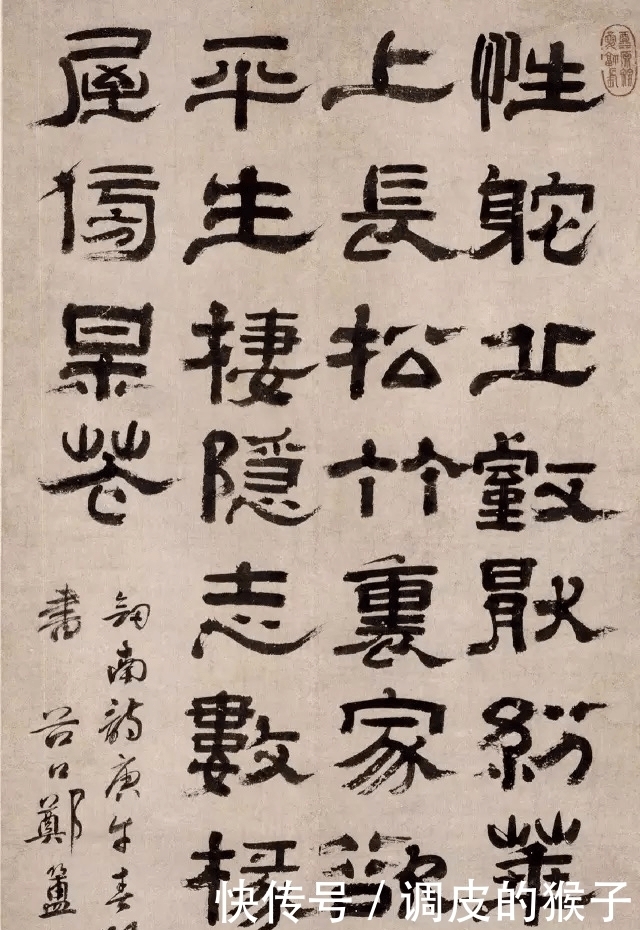 性躭丘壑厭紛華
上長松竹裏家欲
平生棲隱志數椽
屋傍某花
劍南詩庚午春
書 谷口鄭簠
快传号 / 调皮的猴子